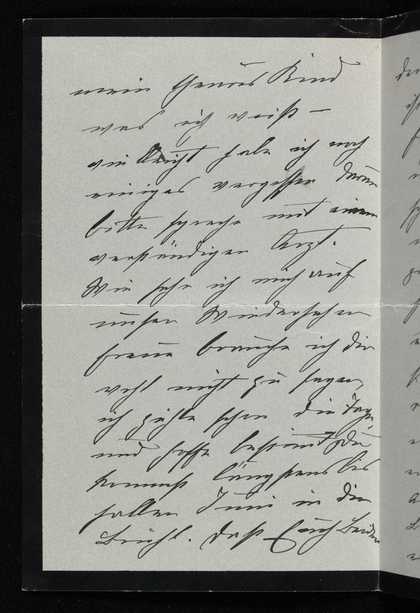 mein theures Kind
was ich weiß —
vielleicht habe ich noch
einiges vergessen darum
bitte spreche mit einem
verständigen Arzt.
Wie sehr ich mich auf
unser Wiedersehen
freue brauche ich dir
wohl nicht zu sagen,
ich zähle schon die Tage
und hoffe bestimmt du
kommst längstens bis
halben Juni in die
Brühl. Daß Euch Beiden